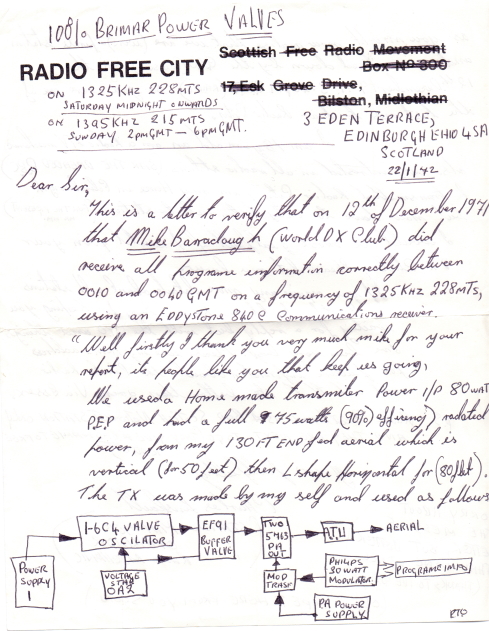 100% BRIMAR POWER VALVES
RADIO FREE CITY
ON 1325KHZ 228MTS
SATURDAY MIDNIGHT ONWARDS
ON 1395KHZ 215MTS
SUNDAY 2PMGMT — 6PMGMT.
Scottish Free Radio Movement
Box Nº 800
17, Esk Grove Drive,
Bilston, Midlothian
3 EDEN TERRACE,
EDINBURGH EH10 4SA
SCOTLAND
22/1/42
Dear Sir,
This is a letter to verify that on 12th of December 1971
that Mike Barraclough (World DX Club) did
receive all programe information correctly between
0010 and 0040 GMT on a frequency of 1325KHZ 228MTS,
using an EDDYSTONE 840C Communications receiver.
"Well firstly I thank you very much mike for your
report, its people like you that keep us going,
We used a Home made transmiter Power I/P 80 WATT
P.E.P and had a full 75 watts (90%) radiated
power, from my 130FT END fed aerial which is
vertical (for 50 feet) then L shape Horizontal for (80 feet).
The TX was made by my self and used as follows
1-6C4 VALVE
OSCILATOR
EF91
BUFFER
VALVE
TWO
5763
PA
OUT
A.T.U
AERIAL
POWER
SUPPLY
1
VOLTAGE
STAB
OA2
MOD
TRASF
PHILIPS
30 WATT
MODULATOR
PROGRAME IMPO
PA POWER
SUPPLY
PTO